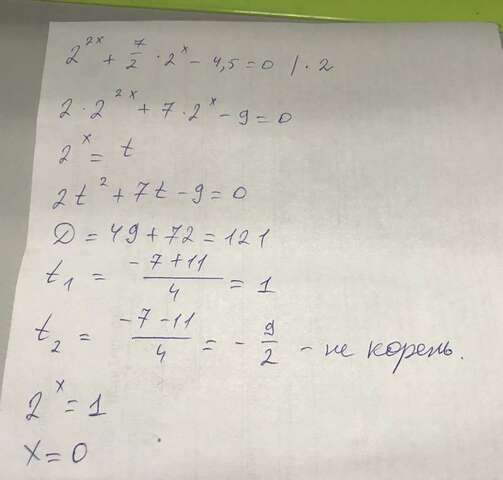 2^{2x} + \frac{7}{2} · 2^x - 4,5 = 0 | · 2
2 · 2^{2x} + 7 · 2^x - 9 = 0
2^x = t
2t^2 + 7t - 9 = 0
D = 49 + 72 = 121
t_1 = \frac{-7 + 11}{4} = 1
t_2 = \frac{-7 - 11}{4} = -\frac{9}{2} - не корень.
2^x = 1
x = 0